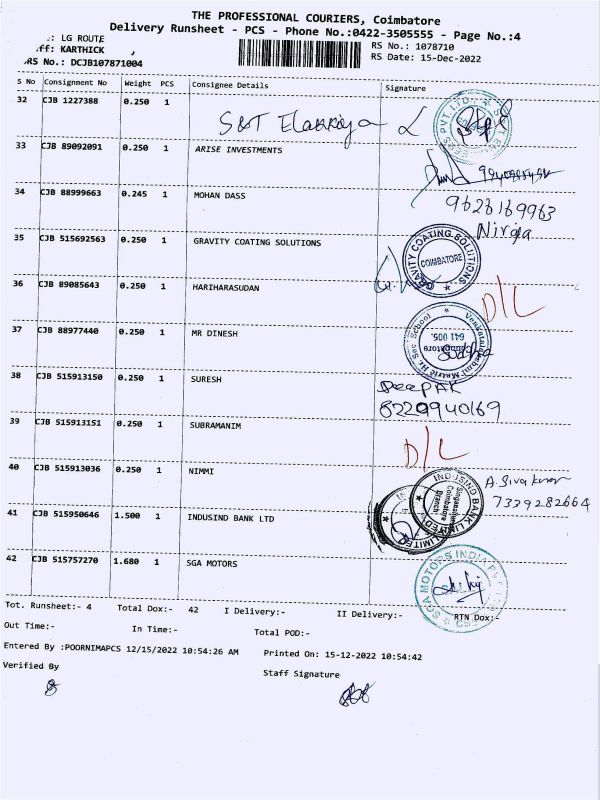 THE PROFESSIONAL COURIERS, Coimbatore
Delivery Runsheet - PCS - Phone No.:0422-3505555 - Page No.:4
.: LG ROUTE
ff: KARTHICK
RS No.: DCJB107871004
RS No.: 1078710
RS Date: 15-Dec-2022
S No Consignment No Weight PCS Consignee Details Signature
32 CJB 1227388 0.250 1
S&T
33 CJB 89092091 0.250 1 ARISE INVESTMENTS
34 CJB 88999663 0.245 1 MOHAN DASS
9626169963
35 CJB 515692563 0.250 1 GRAVITY COATING SOLUTIONS
GRAVITY COATING SOLUTIONS
COIMBATORE
36 CJB 89085643 0.250 1 HARIHARASUDAN
D/L
37 CJB 88977440 0.250 1 MR DINESH
641 005.
38 CJB 515913150 0.250 1 SURESH
DeePAK
8229940169
39 CJB 515913151 0.250 1 SUBRAMANIM
D/L
40 CJB 515913036 0.250 1 NIMMI
7339282664
41 CJB 515950646 1.500 1 INDUSIND BANK LTD
INDUSIND BANK LIMITED
42 CJB 515757270 1.680 1 SGA MOTORS
SGA MOTORS INDIA
Tot. Runsheet:- 4 Total Dox:- 42 I Delivery:- II Delivery:- RTN Dox:-
Out Time:- In Time:- Total POD:-
Entered By :POORNIMAPCS 12/15/2022 10:54:26 AM Printed On: 15-12-2022 10:54:42
Verified By Staff Signature